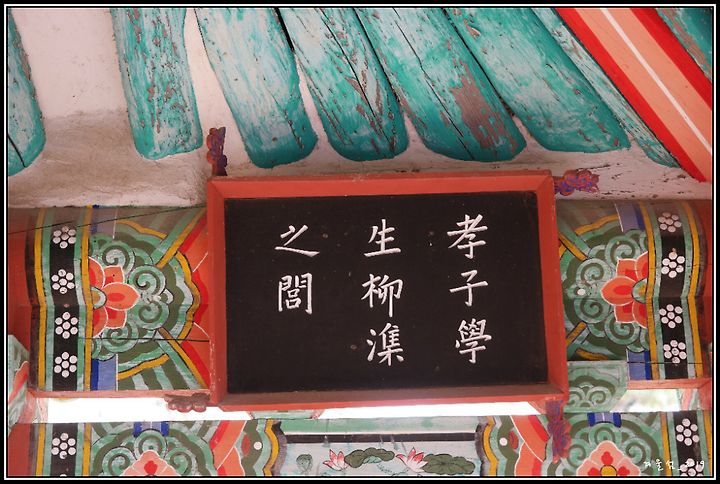 孝子學
生柳潗
之閭